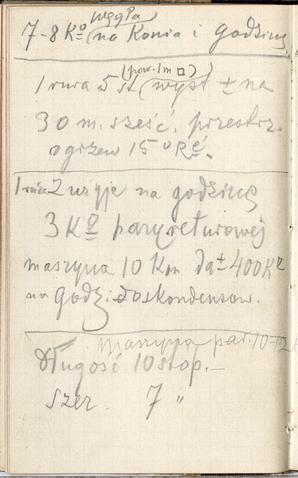 węgla
7-8 Kº (na Konia i godzinę
(pow. 1m □)
1 rura 5 st (wyst ± na
30 m. sześć. przestrz.
ogrzew 15º Ré.
1 rura 2 zużyje na godzinę
3 Kº pary returowej
maszyna 10 Km da ± 400 Kº
na godz. do skondensow.
maszyna par. 10-12
długość 10 stop.-
szer. 7 "